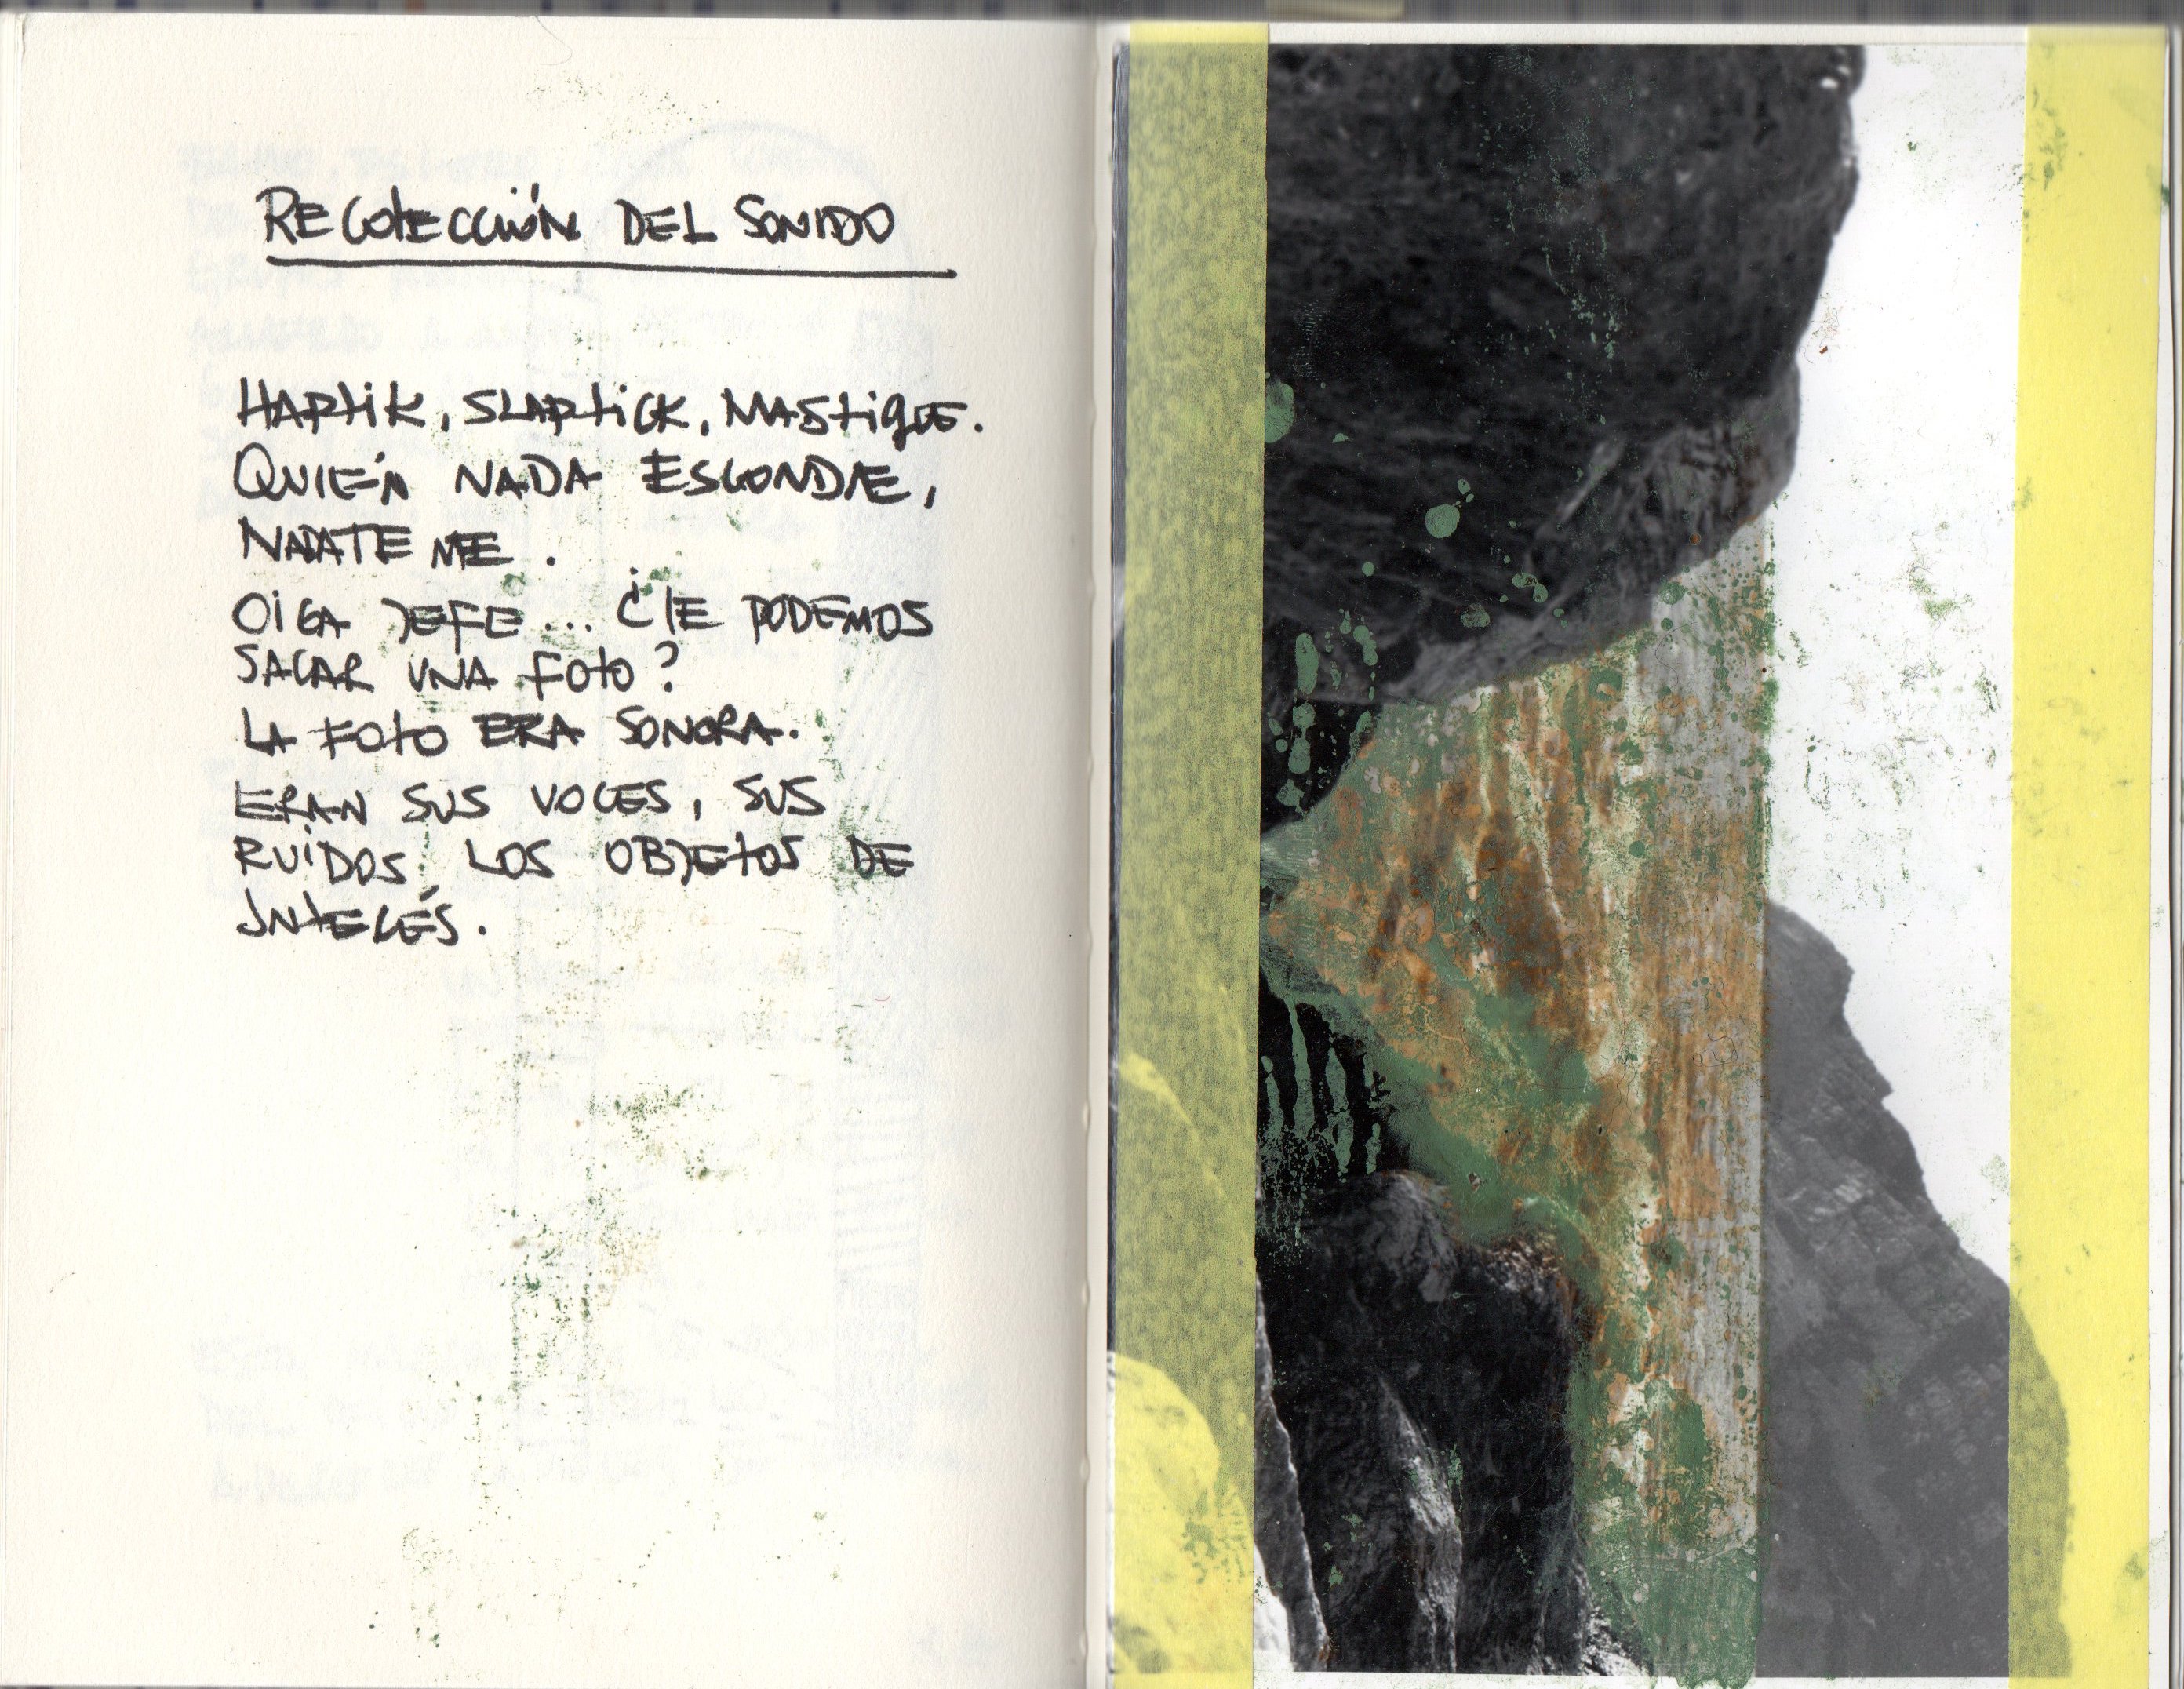 RECOLECCIÓN DEL SONIDO
HAPTIK, SLAPTICK, MASTIQUE.
QUIÉN NADA ESCONDE,
NADATEME.
OIGA JEFE... ¿LE PODEMOS
SACAR UNA FOTO?
LA FOTO ERA SONORA.
ERAN SUS VOCES, SUS
RUIDOS LOS OBJETOS DE
INTERÉS.